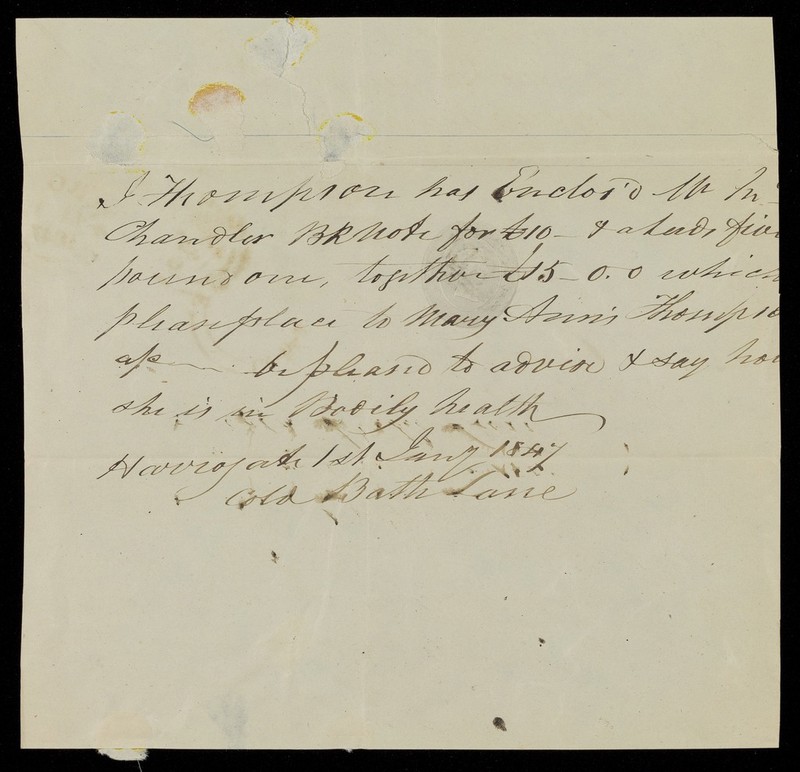 J Thompson has Enclos'd Mr
Chandler BK Note for £10 - & a Leeds five
pound one, together £15-0.0 which
please place to Mary Ann's Thompso
a/c be pleas'd to advise & say how
she is in Bodily health
Harrogate 1st Jany 1847
Cold Bath Lane